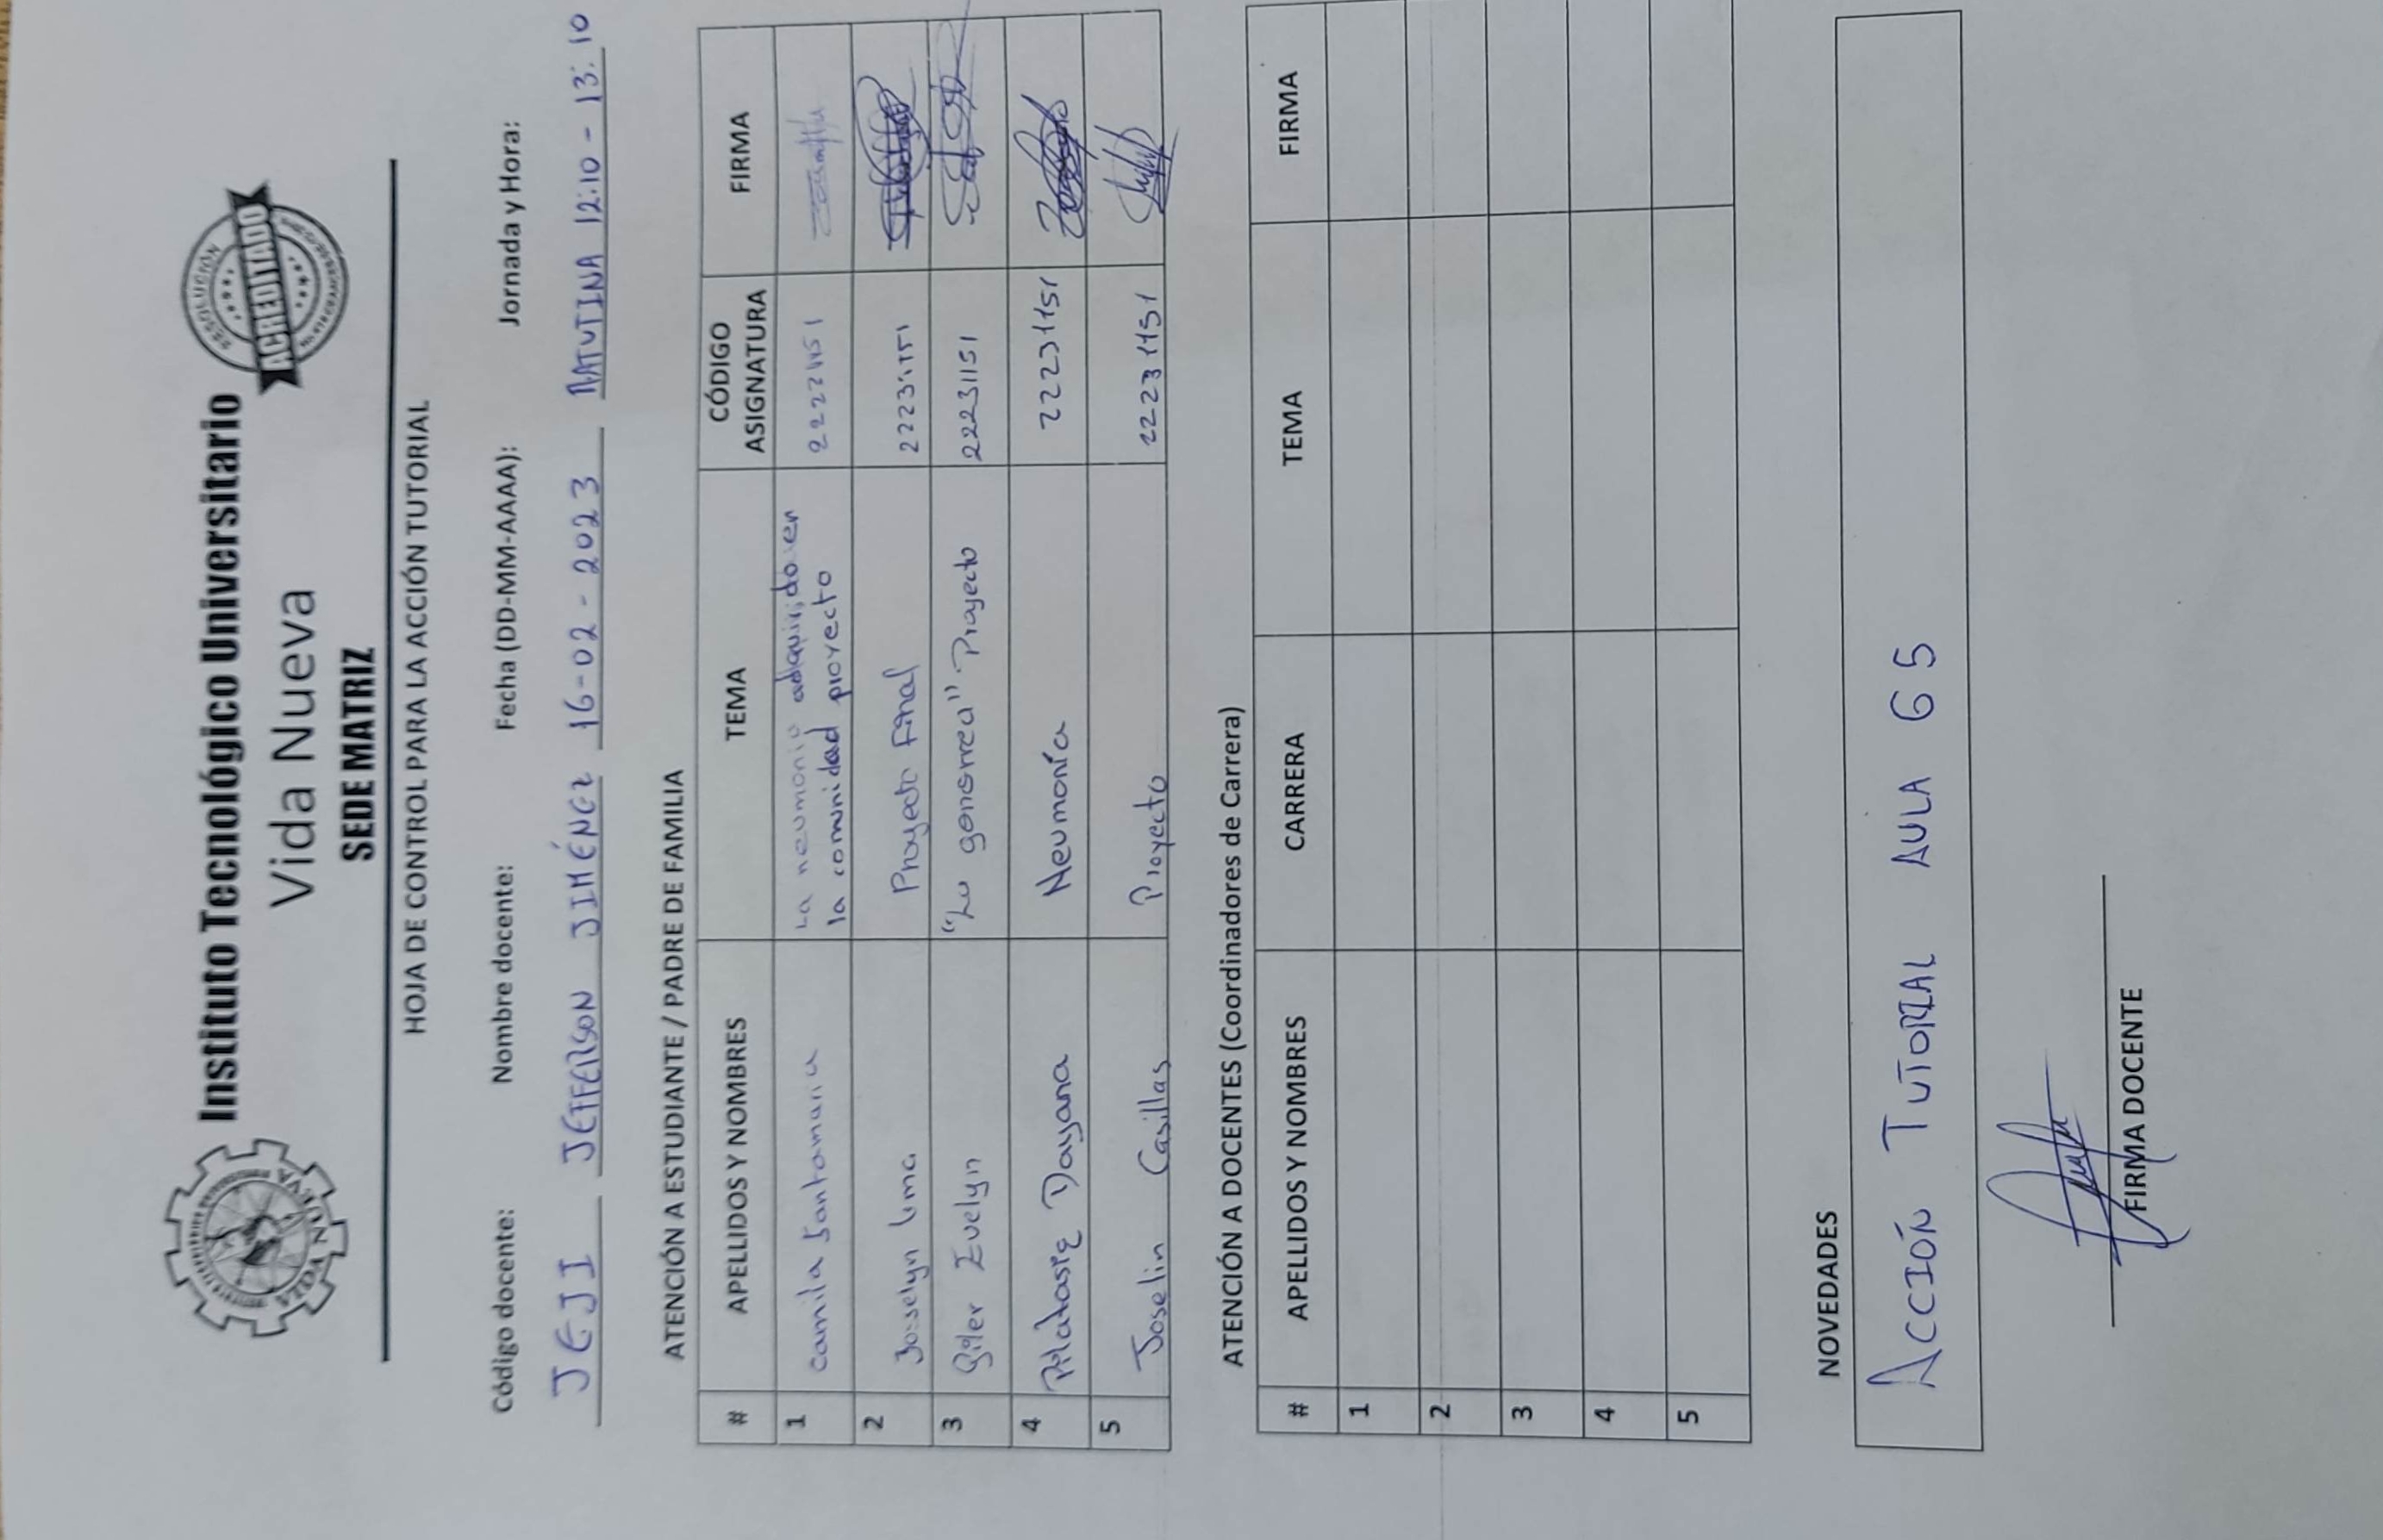 Instituto Tecnológico Universitario
Vida Nueva
SEDE MATRIZ
VIDA NUEVA
RESOLUCIÓN
ACREDITADO
HOJA DE CONTROL PARA LA ACCIÓN TUTORIAL
Código docente: Nombre docente: Fecha (DD-MM-AAAA): Jornada y Hora:
JEJI JEFFERSON JIMÉNEZ 16-02-2023 MATUTINA 12:10 - 13:10
ATENCIÓN A ESTUDIANTE / PADRE DE FAMILIA
# APELLIDOS Y NOMBRES TEMA CÓDIGO ASIGNATURA FIRMA
1 Camila Santamaria La neumonia adquirido en
la comunidad proyecto
2 Josselyn Proyecto Final
3 Giler Evelyn "La gonorrea" Proyecto 22231151
4 Pilatasig Dayana Neumonía 22231151
5 Joselin Casillas Proyecto 22231151
ATENCIÓN A DOCENTES (Coordinadores de Carrera)
# APELLIDOS Y NOMBRES CARRERA TEMA FIRMA
1
2
3
4
5
NOVEDADES
ACCIÓN TUTORIAL AULA 65
FIRMA DOCENTE